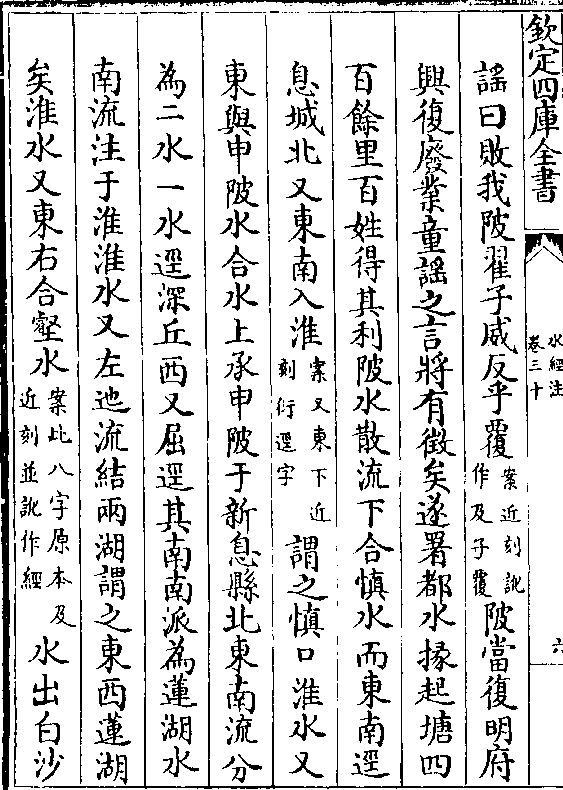 欽定四庫全書
水經注
卷三十
六
謡曰敗我陂翟子威反乎覆案近刻訛作及子覆陂當復明府
興復廢業童謡之言將有徵矣遂署都水掾起塘四
百餘里百姓得其利陂水散流下合慎水而東南逕
息城北又東南入淮案又東下近刻衍逕字謂之慎口淮水又
東與申陂水合水上承申陂于新息縣北東南流分
為二水一水逕深丘西又屈逕其南南派為蓮湖水
南流注于淮淮水又左迆流結兩湖謂之東西蓮湖
矣淮水又東右合壑水案此八字原本及近刻並訛作經水出白沙